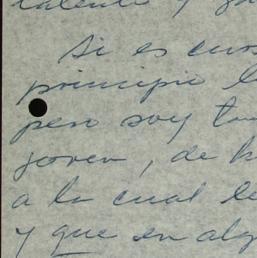 talento y
Si es
principio
pero soy
joven, de
a la cual le
y que en alg